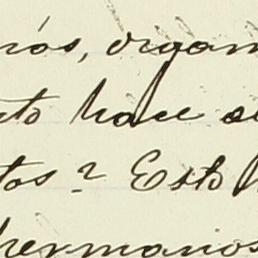 rós, organ
to hace a
tos? Esto h
hermanos